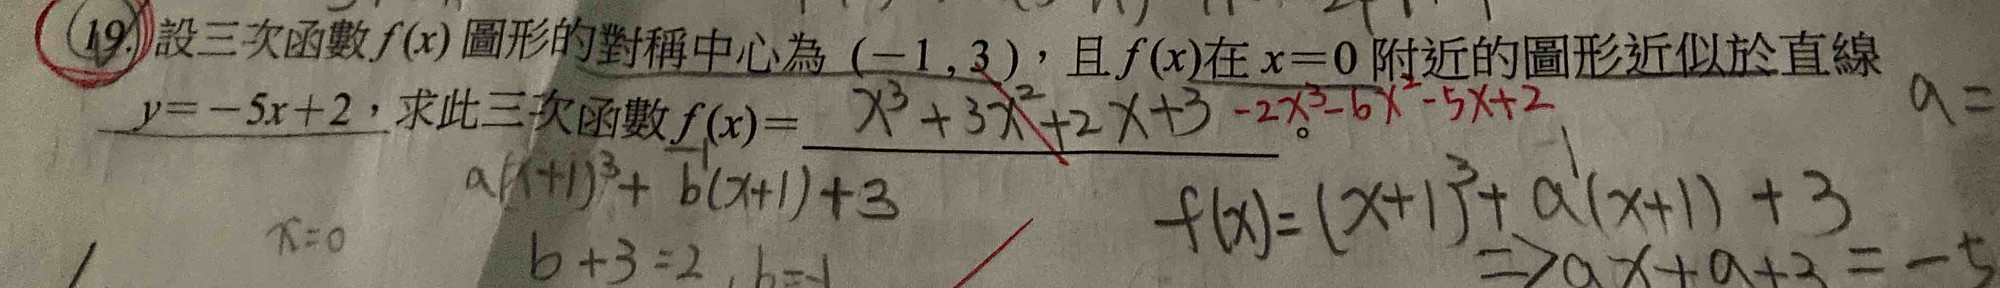 19. 設三次函數 f(x) 圖形的對稱中心為 (−1 , 3)，且 f(x)在 x＝0 附近的圖形近似於直線
y＝−5x＋2，求此三次函數 f(x)＝ x³+3x²+2x+3 -2x³-6x²-5x+2 。
a=
a(x+1)³+ b(x+1)+3
f(x)=(x+1)³+ a(x+1) +3
x=0
b+3=2, b=-1
⇒ax+a+3=-5